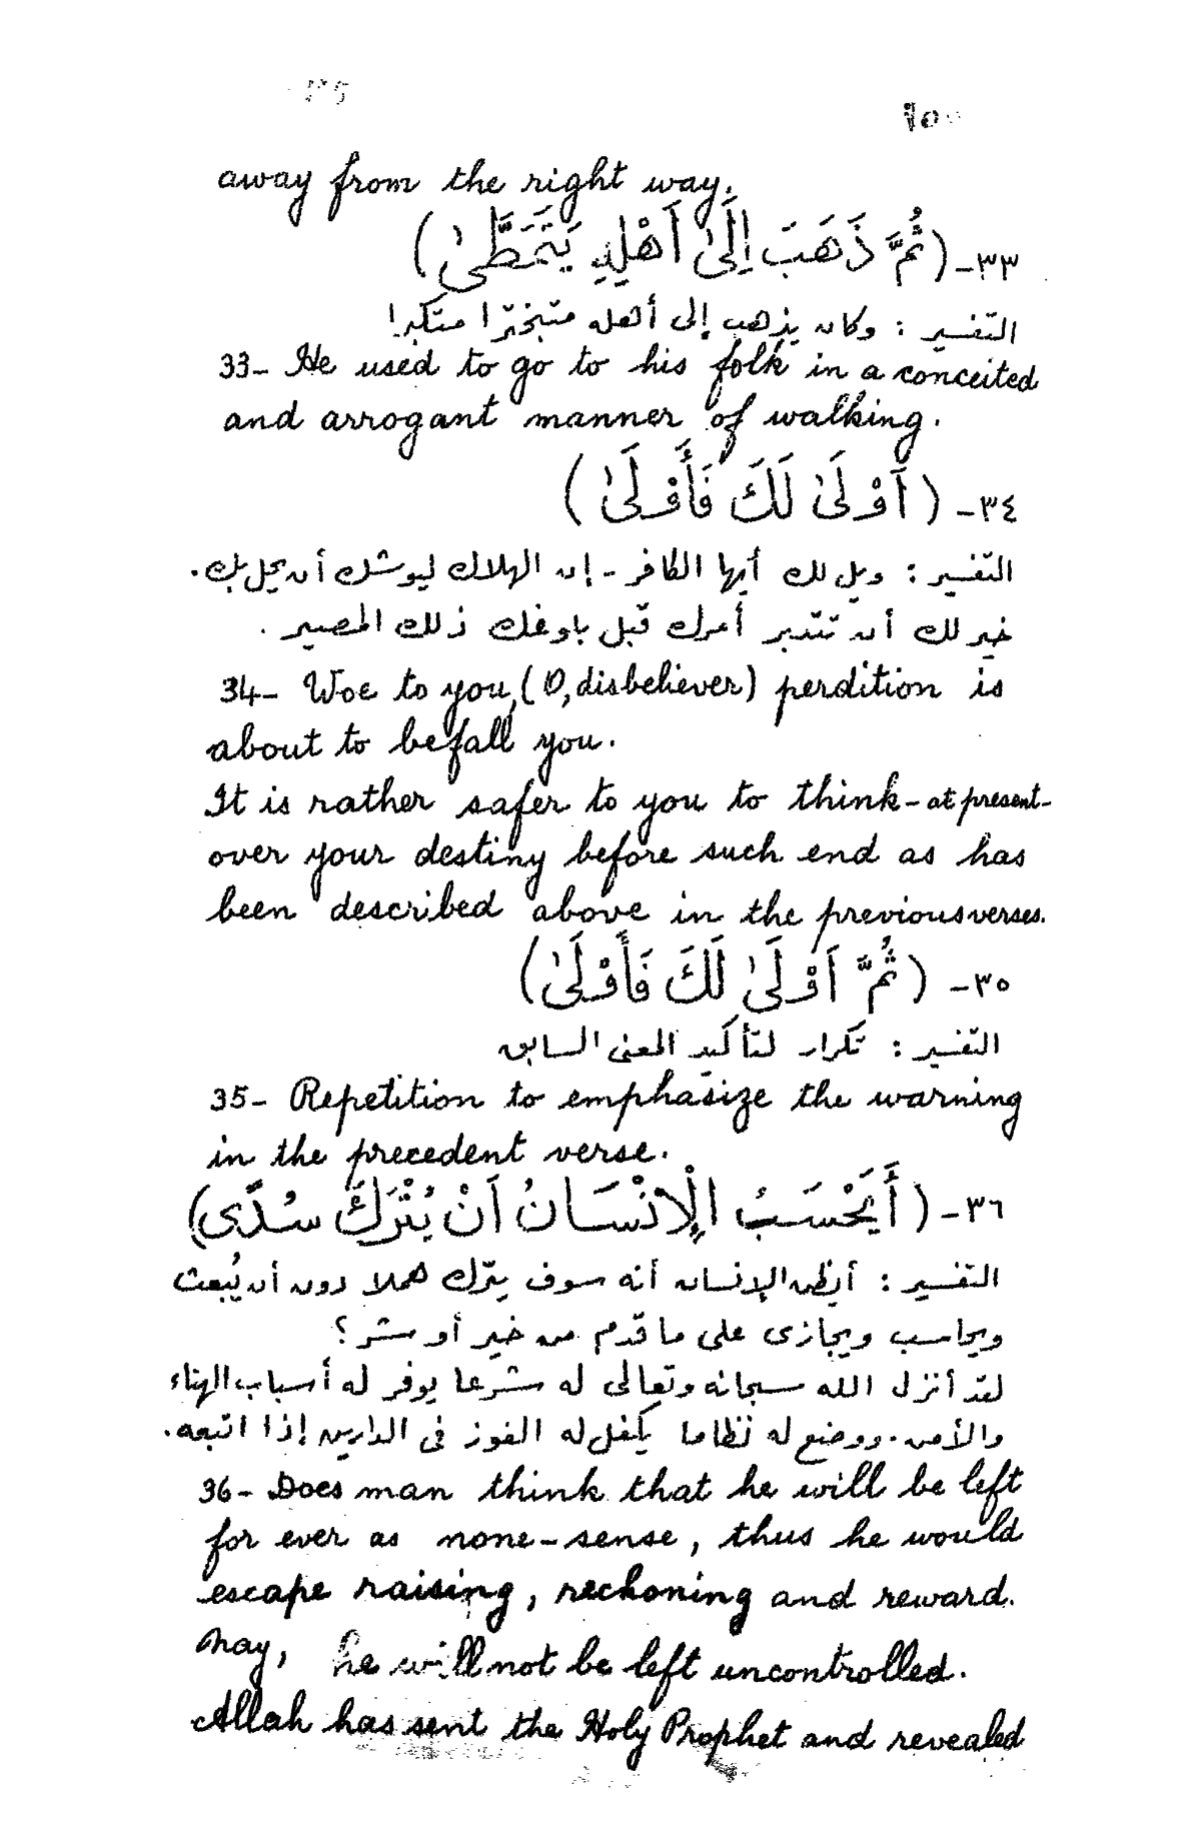 away from the right way.
٣٣- (ثُمَّ ذَهَبَ إِلَىٰ أَهْلِهِ يَتَمَطَّىٰ)
التفسير : وكان يذهب إلى أهله متبخترا متكبرا
33- He used to go to his folk in a conceited
and arrogant manner of walking.
٣٤- (أَوْلَىٰ لَكَ فَأَوْلَىٰ)
التفسير : ويل لك أيها الكافر - إن الهلاك ليوشك أن يحل بك.
خير لك أن تتدبر أمرك قبل بلوغك ذلك المصير .
34- Woe to you, (O, disbeliever) perdition is
about to befall you.
It is rather safer to you to think - at present -
over your destiny before such end as has
been described above in the previous verses.
٣٥- (ثُمَّ أَوْلَىٰ لَكَ فَأَوْلَىٰ)
التفسير : تكرار لتأكيد المعنى السابق
35- Repetition to emphasize the warning
in the precedent verse.
٣٦- (أَيَحْسَبُ الْإِنْسَانُ أَنْ يُتْرَكَ سُدًى)
التفسير : أيظن الإنسان أنه سوف يترك هملا دون أن يُبعث
ويحاسب ويجازى على ما قدم من خير أو شر ؟
لقد أنزل الله سبحانه وتعالى له شرعا يوفر له أسباب الهناء
والأمن. ووضع له نظاما يكفل له الفوز فى الدارين إذا اتبعه.
36- Does man think that he will be left
for ever as none-sense, thus he would
escape raising, reckoning and reward.
Nay, he will not be left uncontrolled.
Allah has sent the Holy Prophet and revealed